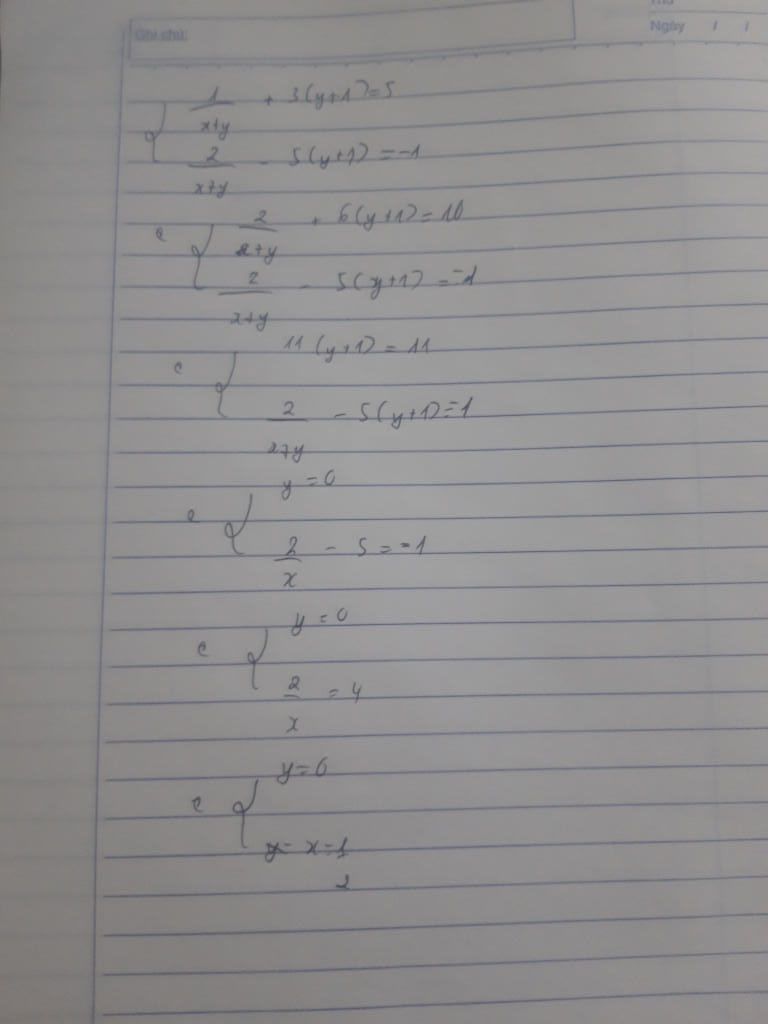 Ghi chú:
Thứ
Ngày / /
1/(x+y) + 3(y+1) = 5
2/(x+y) - 5(y+1) = -1
2/(x+y) + 6(y+1) = 10
2/(x+y) - 5(y+1) = -1
11(y+1) = 11
2/(x+y) - 5(y+1) = 1
y = 0
2/x - 5 = -1
y = 0
2/x = 4
y = 0
x = 1/2